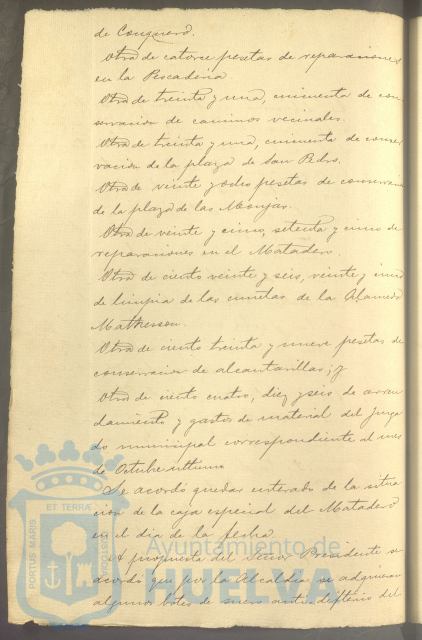 de Conquero.
Otra de catorce pesetas de reparaciones
en la Pescaderia
Otra de treinta y una, cincuenta de con
servacion de caminos vecinales.
Otra de treinta y una, cincuenta de conser
vacion de la plaza de San Pedro.
Otra de veinte y ocho pesetas de conservacion
de la plaza de las Monjas.
Otra de veinte y cinco, setenta y cinco de
reparaciones en el Matadero.
Otra de ciento veinte y seis, veinte y cinco
de limpia de las cunetas de la Alameda
Matheson.
Otra de ciento treinta y nueve pesetas de
conservacion de alcantarillas; y
Otra de ciento cuatro, diez y seis de arren
damiento y gastos de material del Juzga
do municipal correspondiente al mes
de Octubre ultimo
Se acordó quedar enterado de la situa
cion de la caja especial del Matadero
en el dia de la fecha.
A propuesta del Señor Presidente se
acordó que por la Alcaldia se adquieran
algunos botes de suero antidifterico del
PORTUS MARIS ET TERRAE CUSTODIA
Ayuntamiento de
HUELVA